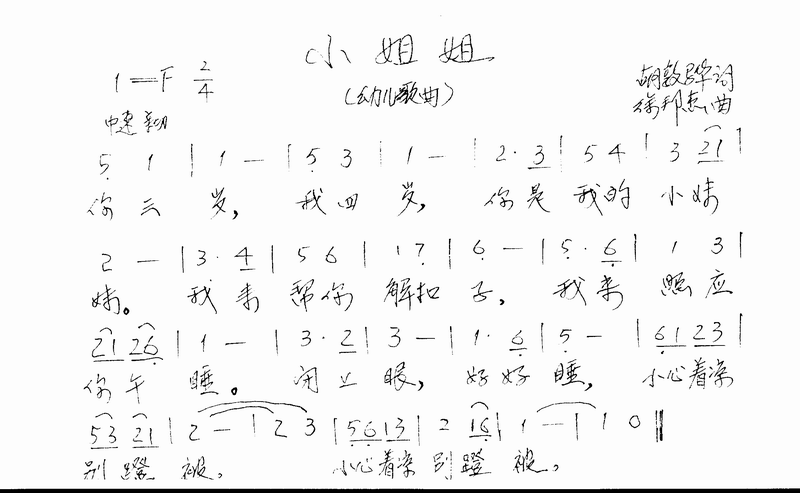 小姐姐
1=F 2/4
(幼儿歌曲)
胡敦骅词
徐邦杰曲
中速
5̣ 1 | 1 - | 5̣ 3 | 1 - | 2· 3 | 5 4 | 3 21 |
你三 岁, 我四 岁, 你是 我的 小妹
2 - | 3· 4 | 5 6 | 1 7̣ | 6̣ - | 5̣· 6̣ | 1 3 |
妹。 我来 帮你 解扣 子, 我来 照应
21 26̣ | 1 - | 3· 2 | 3 - | 1· 6̣ | 5̣ - | 6̣1 23 |
你午 睡。 闭上 眼, 好好 睡, 小心着凉
53 21 | 2 - | 2 3 | 5̣6̣ 13 | 2 16̣ | 1 - | 1 0 ‖
别蹬 被。 小心着凉 别蹬 被。